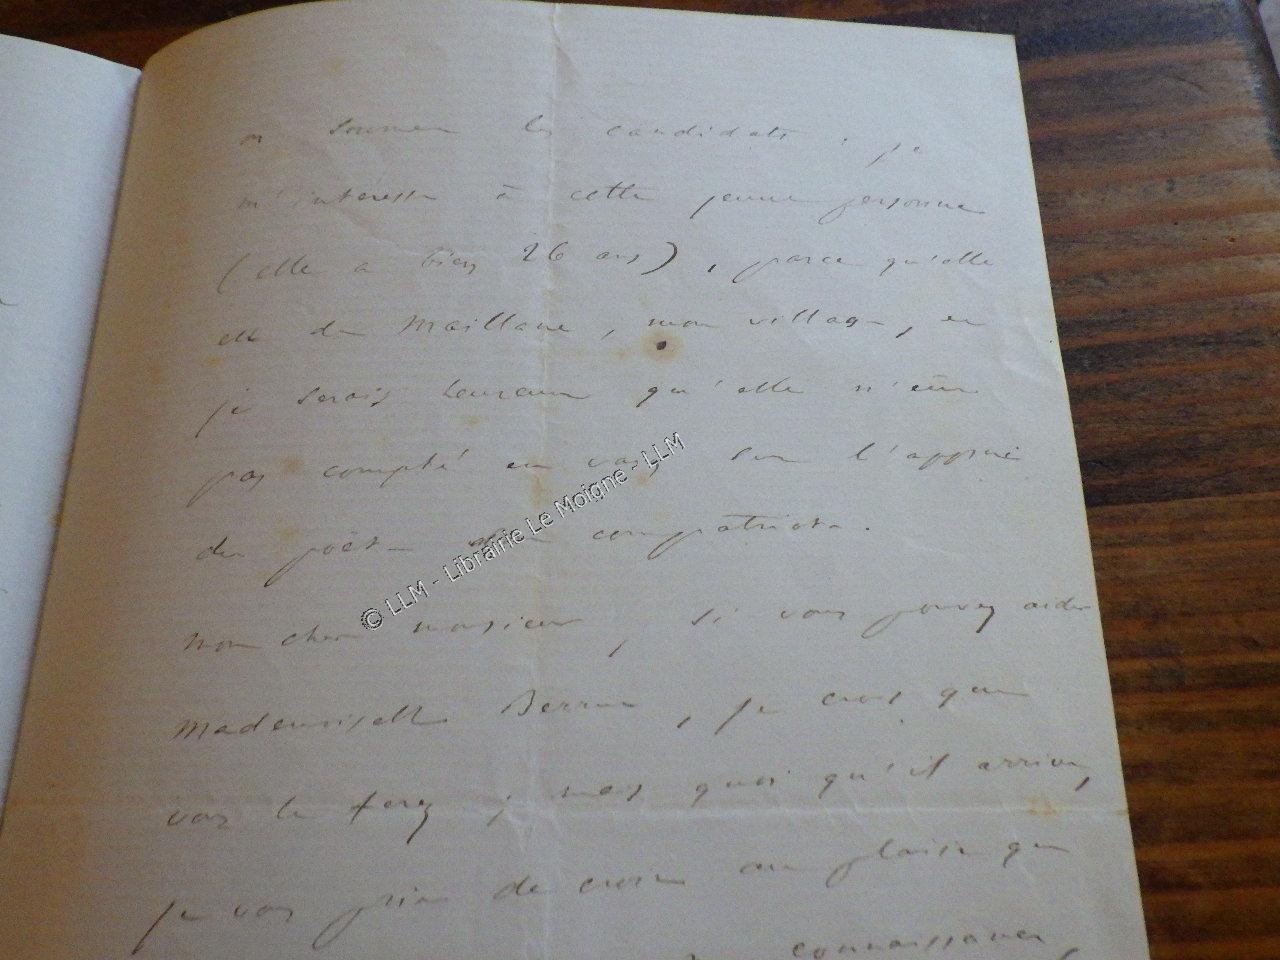 on soumet les candidats. je
m'intéresse à cette jeune personne
(elle a bien 26 ans), parce qu'elle
est de Maillane, mon village, et
je serais heureux qu'elle n'eût
pas compté en vain sur l'appui
du poète compatriote.
mon cher monsieur, si vous pouvez aider
mademoiselle, je crois que
vous le ferez; mais quoi qu'il arrive,
je vous prie de croire au plaisir que
connaissance,
© LLM - Librairie Le Moigne - LLM